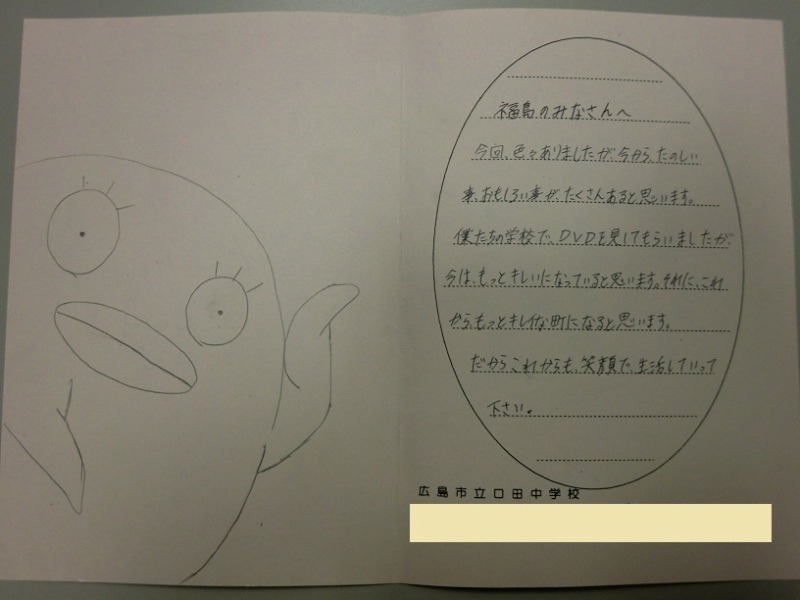 福島のみなさんへ
今回、色々ありましたが、今から、たのしい
事、おもしろい事が、たくさんあると思います。
僕たちの学校で、DVDを見してもらいましたが、
今は、もっとキレいになっていると思います。それに、これ
から、もっとキレイな町になると思います。
だからこれからも、笑顔で、生活していって
下さい。
広島市立口田中学校